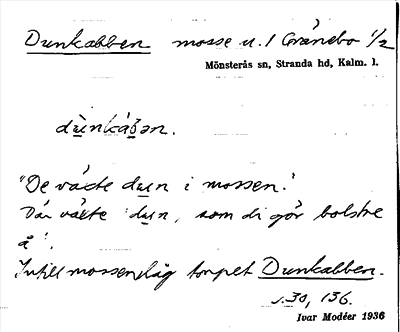 Dunkabben mosse u. l Gränebo 1/2
Mönsterås sn, Stranda hd, Kalm. l.
dùnkába̲n.
"De växte dun i mossen."
Där växte 'dun, som di gör bolstre
å'.
Intill mossen låg torpet Dunkabben.
s. 30, 136.
Ivar Modéer 1936